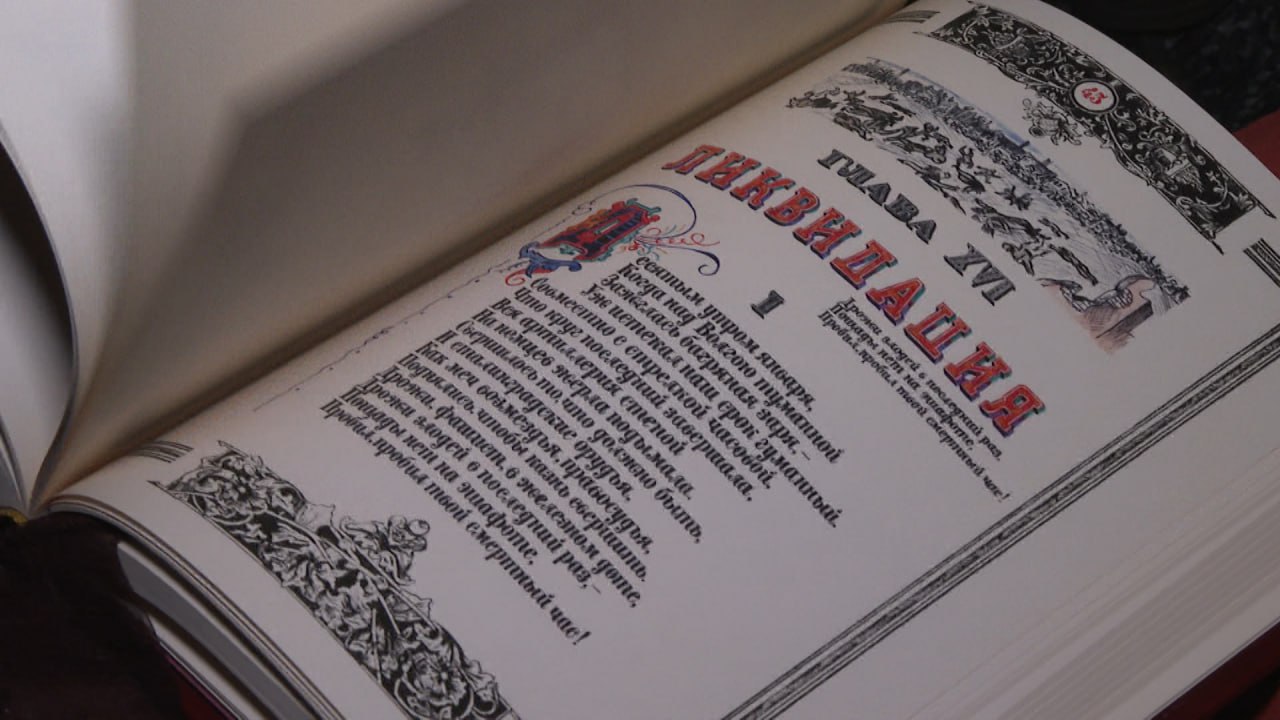 43
ГЛАВА XVI
ЛИКВИДАЦИЯ
Дрожи, злодей в последний раз,
Пощады нет на эшафоте,
Пробил, пробил твой смертный час!
I
Десятым утром января,
Когда над Волгою туманной
Зажглась багряная заря,–
Уж истекал наш срок гуманный.
Совместно с стрелкой часовой,
Что круг последний завершала,
Вся артиллерия стеной
На немцев жерла подымала.
Свершилось то, что должно быть,
И сталинградские орудья,
Как меч возмездья, правосудья,
Поднялись, чтобы казнь свершить.
Дрожи, фашист, в железном доте,
Дрожи злодей в последний раз,–
Пощады нет на эшафоте,
Пробил, пробил твой смертный час!